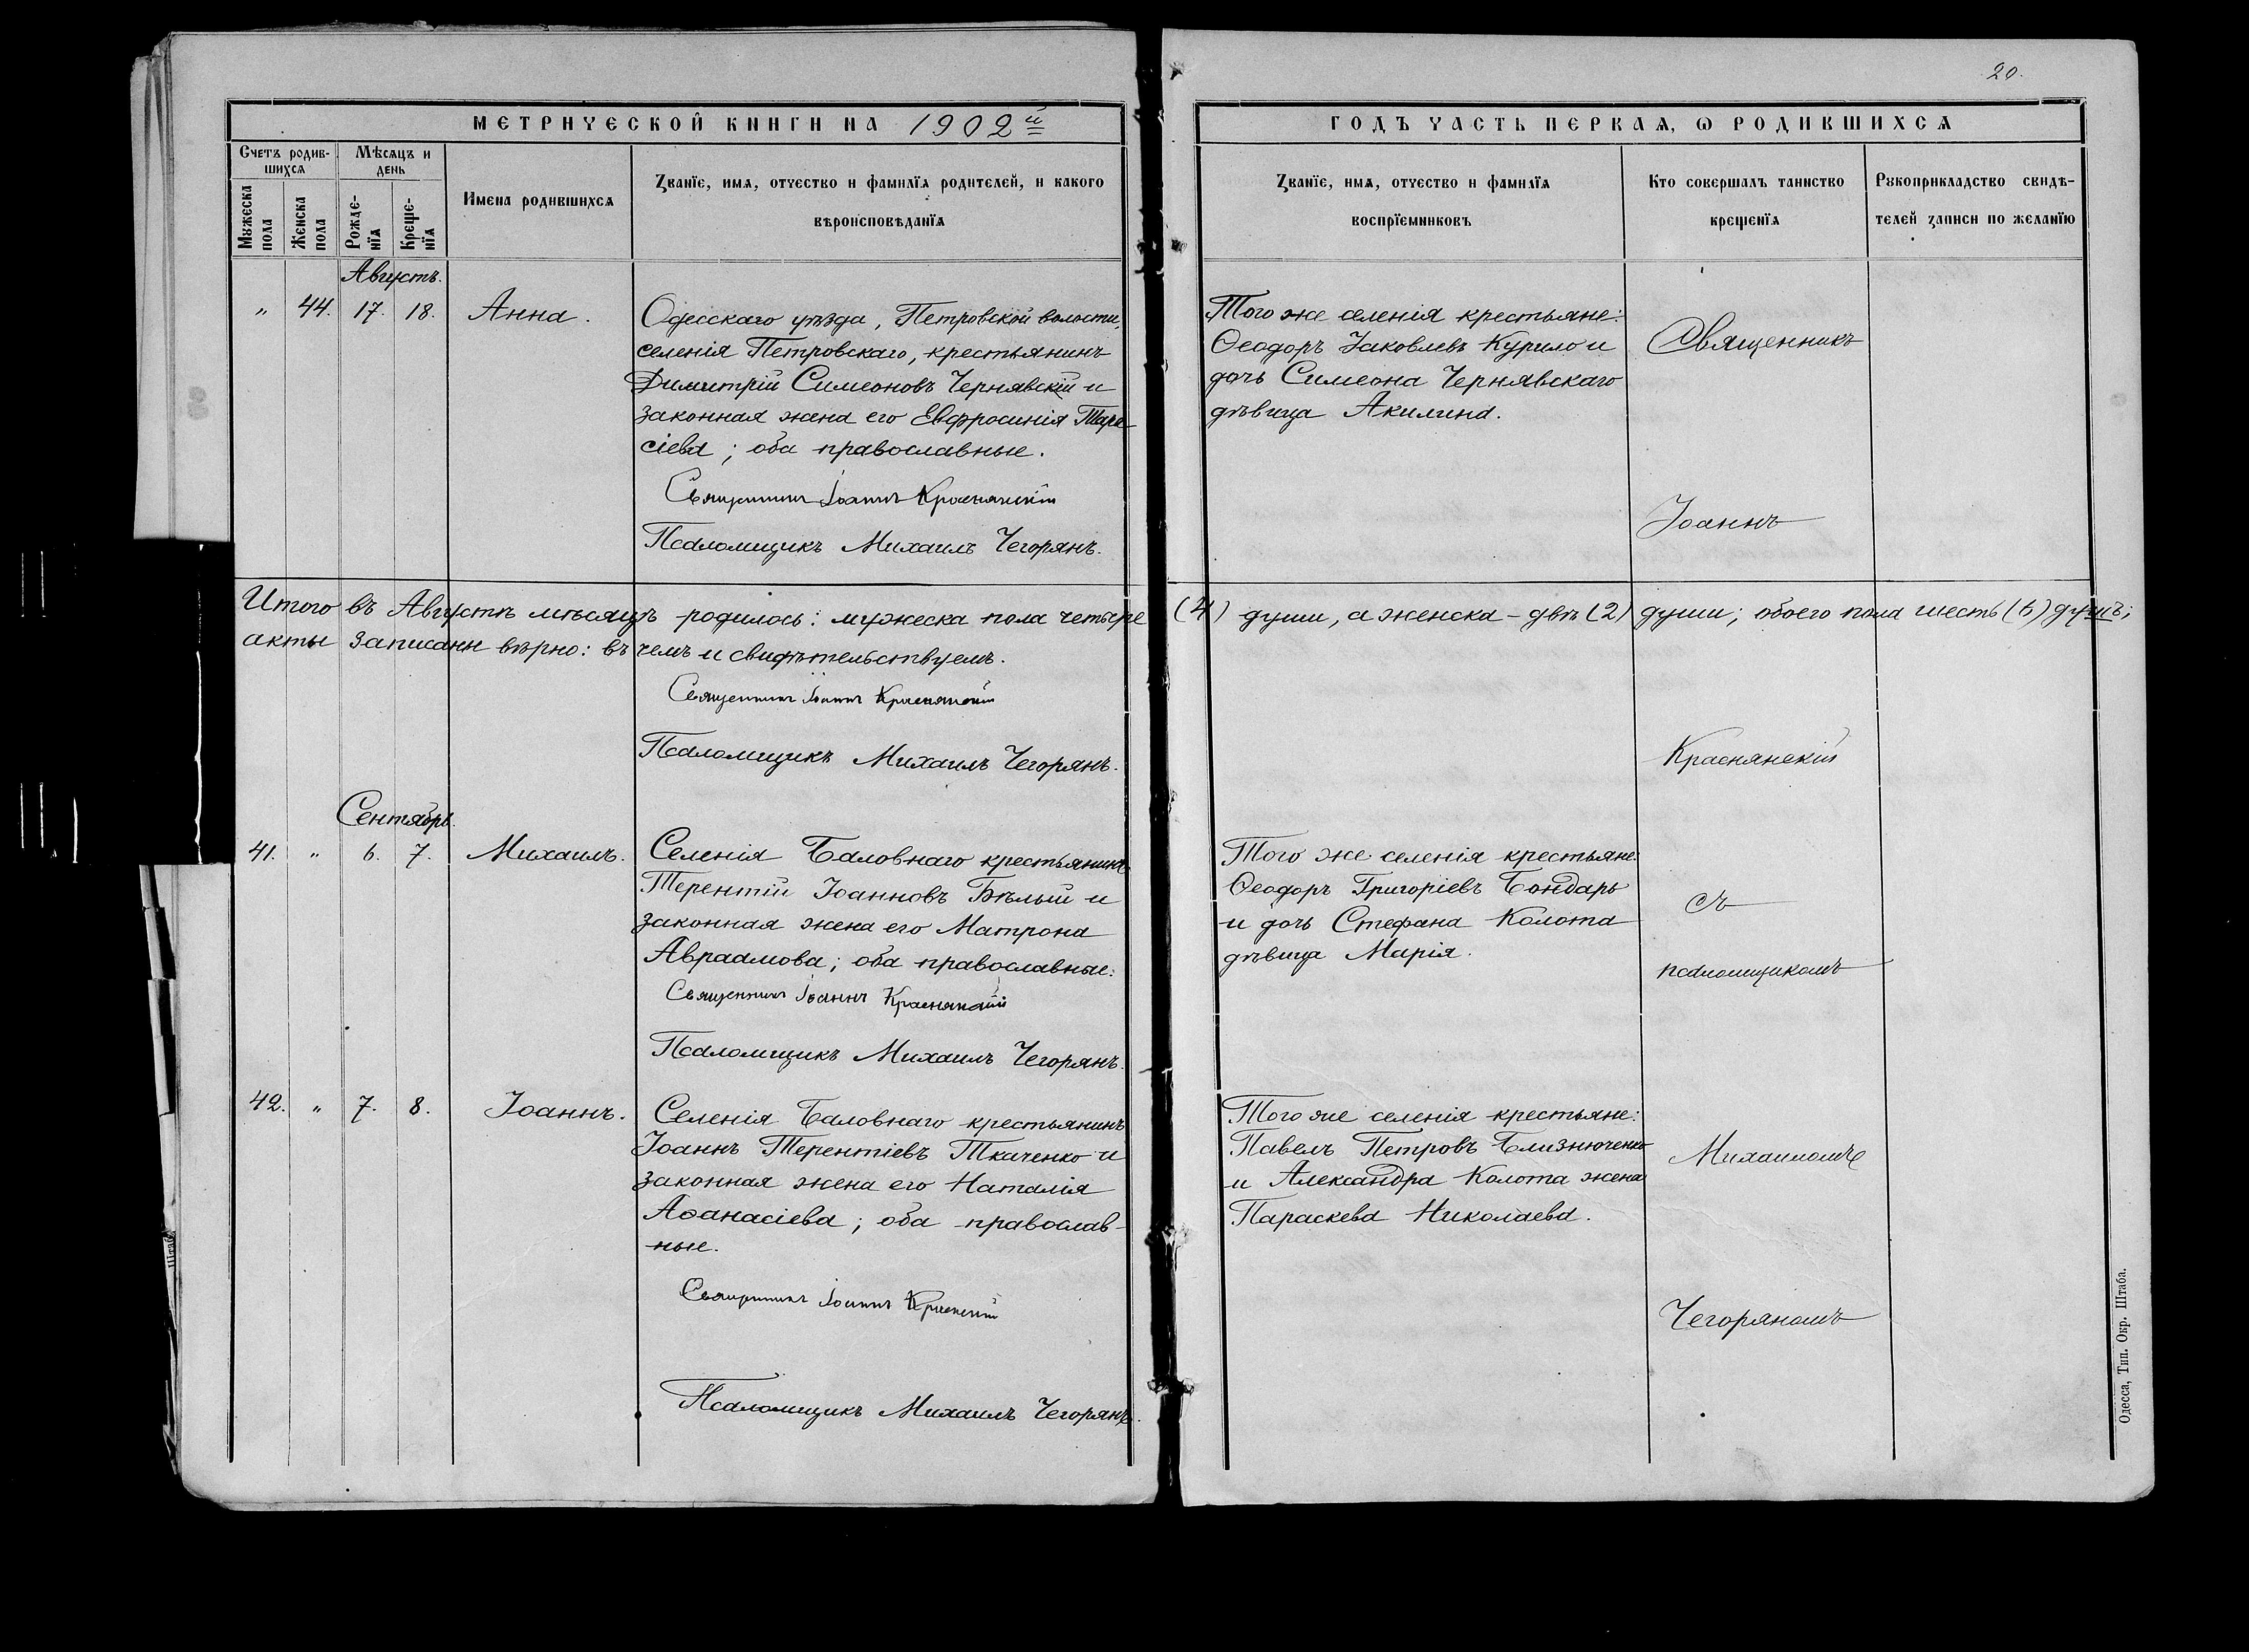 20.
МЕТРИЧЕСКОЙ КНИГИ НА 1902й
ГОДЪ ЧАСТЬ ПЕРВАЯ, Ѡ РОДИВШИХСЯ
Счетъ родив-
шихся
Мѣсяцъ и
день
Мужеска
пола
Женска
пола
Рожде-
нїя
Креще-
нїя
Имена родившихся
Званїе, имя, отчество и фамилїя родителей, и какого
вѣроисповѣданїя
Званїе, имя, отчество и фамилїя
воспрїемниковъ
Кто совершалъ таинство
крещенїя
Рукоприкладство свидѣ-
телей записи по желанїю
Августъ.
„ 44. 17. 18. Анна.
Одесскаго уѣзда, Петровской волости,
селенія Петровскаго, крестьянинъ
Димитрій Симеоновъ Чернявскій и
законная жена его Евфросинія Тара-
сіева; оба православные.
Священникъ Іоаннъ Краснянскій
Псаломщикъ Михаилъ Чегорянъ.
Того же селенія крестьяне:
Ѳеодоръ Іаковлевъ Курило и
дочь Симеона Чернявскаго
дѣвица Акилина.
Священникъ
Іоаннъ
Итого въ Августѣ мѣсяцѣ родилось: мужеска пола четыре (4) души, а женска - двѣ (2) души; обоего пола шесть (6) душъ;
акты записаны вѣрно: въ чемъ и свидѣтельствуемъ.
Священникъ Іоаннъ Краснянскій
Псаломщикъ Михаилъ Чегорянъ.
Краснянскій
Сентябрь.
41. „ 6. 7. Михаилъ.
Селенія Баловнаго крестьянинъ
Терентій Іоанновъ Бѣлый и
законная жена его Матрона
Авраамова; оба православные:
Священникъ Іоаннъ Краснянскій
Псаломщикъ Михаилъ Чегорянъ.
Того же селенія крестьяне:
Ѳеодоръ Григоріевъ Бондарь
и дочь Стефана Колота
дѣвица Марія.
съ
псаломщикомъ
42. „ 7. 8. Іоаннъ.
Селенія Баловнаго крестьянинъ
Іоаннъ Терентіевъ Ткаченко и
законная жена его Наталія
Аѳанасіева; оба православ-
ные.
Священникъ Іоаннъ Краснянскій
Псаломщикъ Михаилъ Чегорянъ.
Того же селенія крестьяне:
Павелъ Петровъ Близнюченко
и Александра Колота жена
Параскева Николаева.
Михаиломъ
Чегоряномъ
Одесса, Тип. Окр. Штаба.